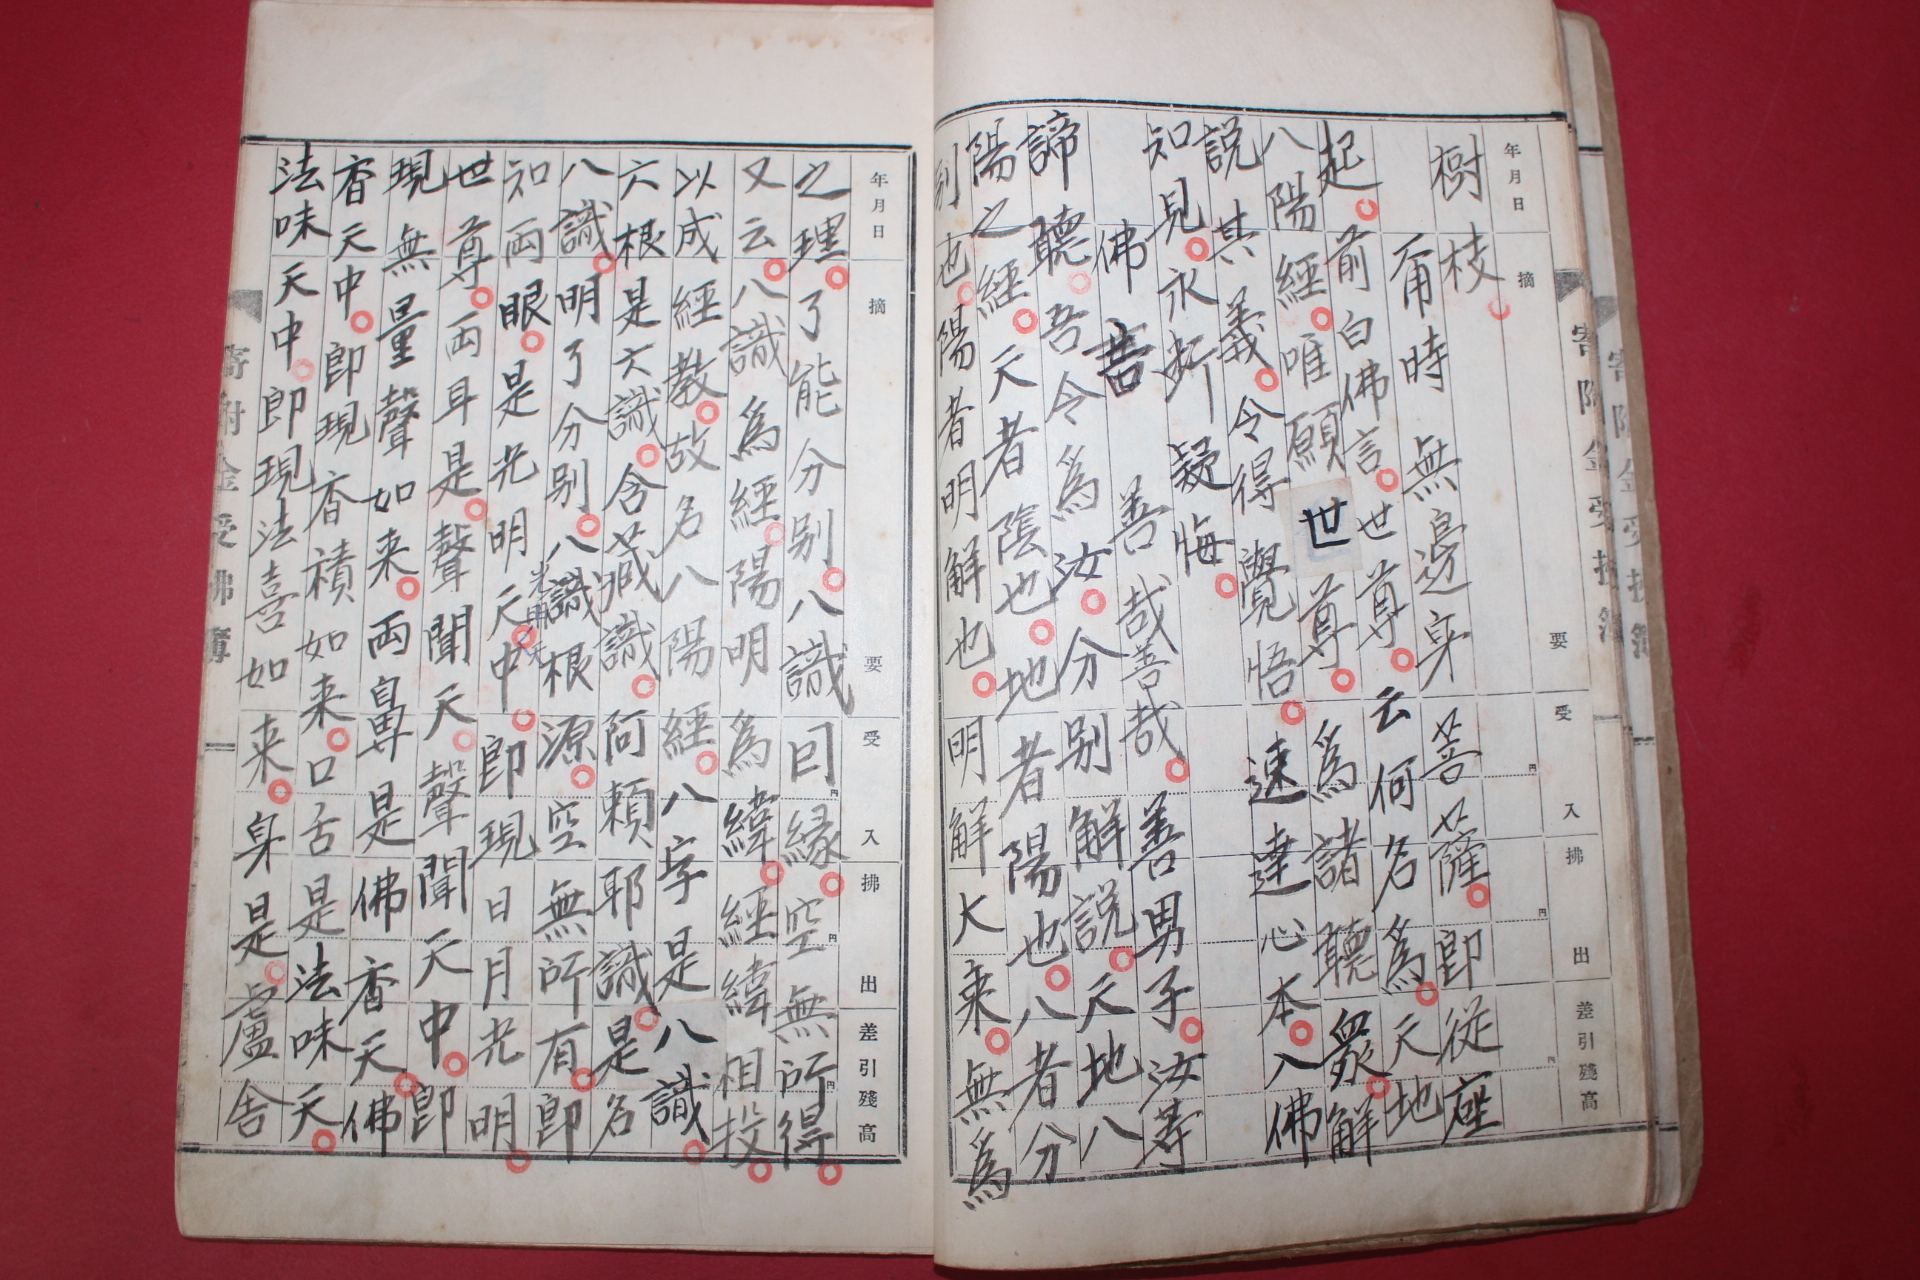 年月日
摘
要
受
入
拂
出
差引殘高
樹枝
爾時無邊身菩薩即從座
起前白佛言世尊云何名爲天地
八陽經唯願世尊爲諸聽衆解
說其義令得覺悟速達心本入佛
知見永斷疑悔
佛言善哉善哉善男子汝等
諦聽吾今爲汝分别解說天地八
陽之經天者陰也地者陽也八者分
别也陽者明解也明解大乘無爲
年月日
摘
要
受
入
拂
出
差引殘高
之理了能分别八識因緣空無所得
又云八識爲經陽明爲緯經緯相投
以成經教故名八陽經八字是八識
六根是六識含藏識阿賴耶識是名
八識明了分别八識根源空無所有即
知兩眼是光明天中即現日月光明
世尊兩耳是聲聞天聲聞天中即
現無量聲如来兩鼻是佛香天佛
香天中即現香積如来口舌是法味天
法味天中即現法喜如来身是盧舍